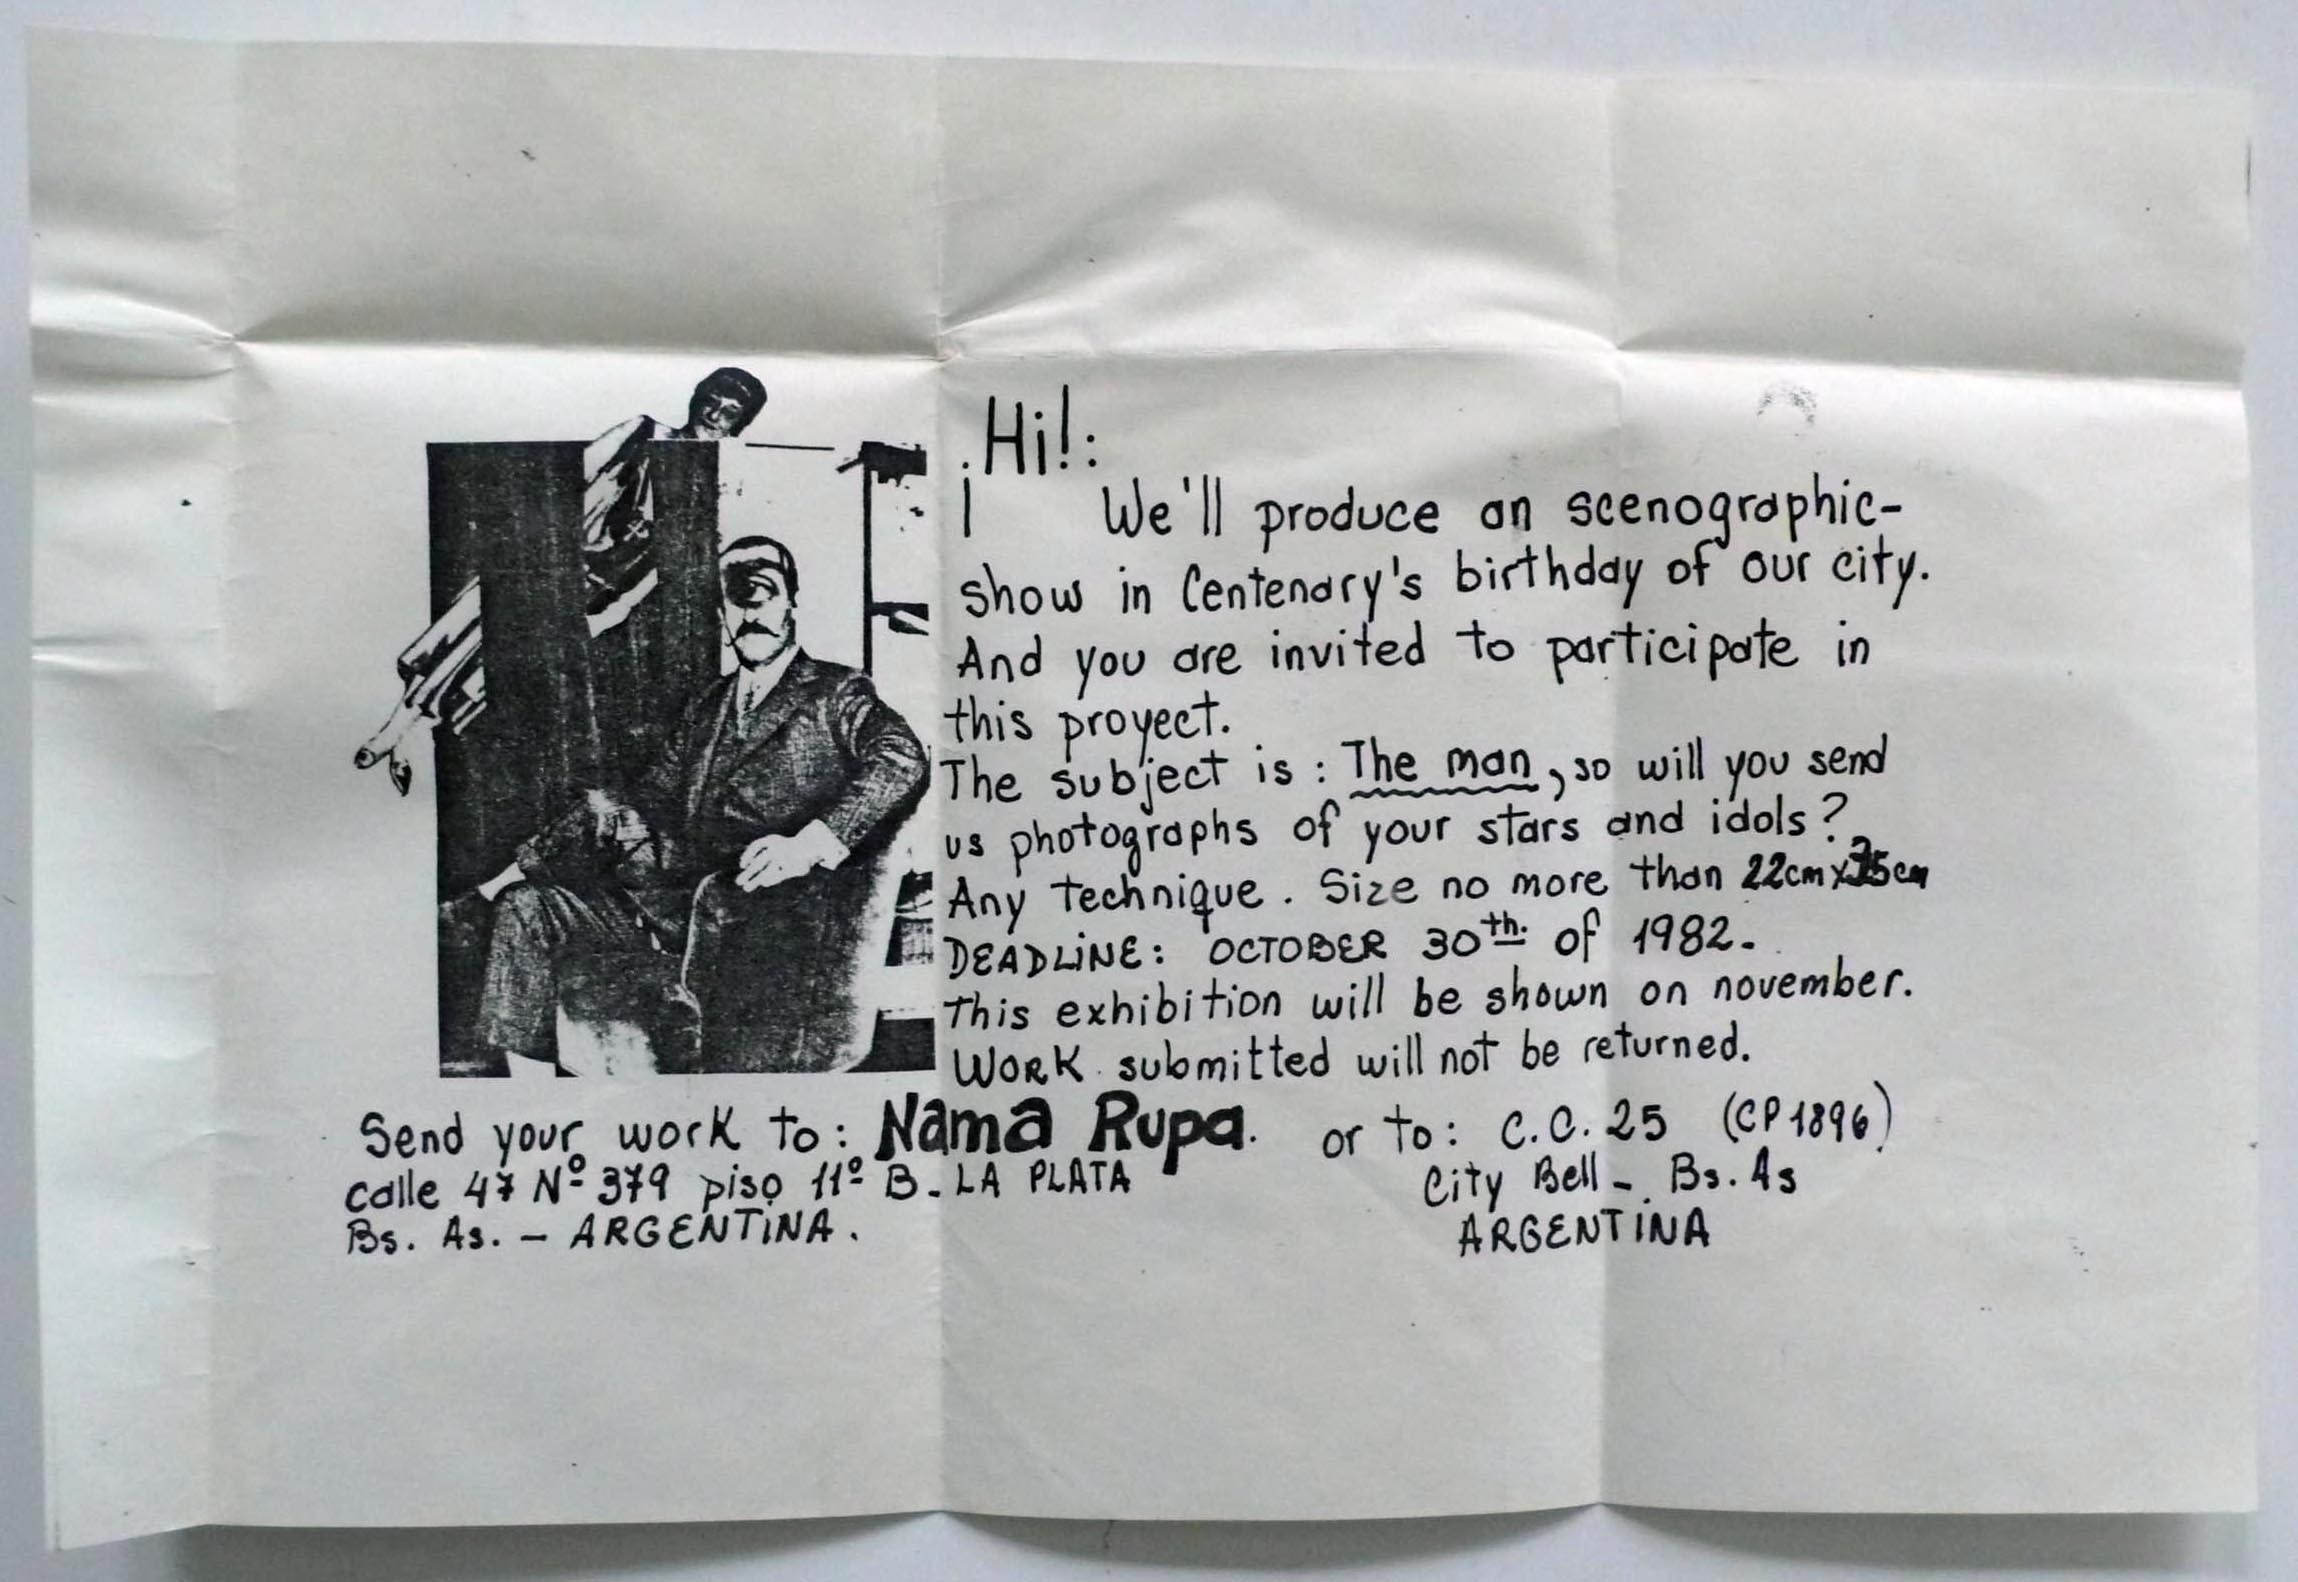 ¡Hi!:
We'll produce an scenographic-
show in Centenary's birthday of our city.
And you are invited to participate in
this proyect.
The subject is: The man, so will you send
us photographs of your stars and idols?
Any technique. Size no more than 22cm x 35cm
DEADLINE: OCTOBER 30th. of 1982.
This exhibition will be shown on november.
WORK submitted will not be returned.
Send your work to: Nama Rupa.
calle 47 Nº 379 piso 11º B. LA PLATA
Bs. As. - ARGENTINA.
or to: C.C. 25 (CP 1896)
City Bell - Bs. As
ARGENTINA